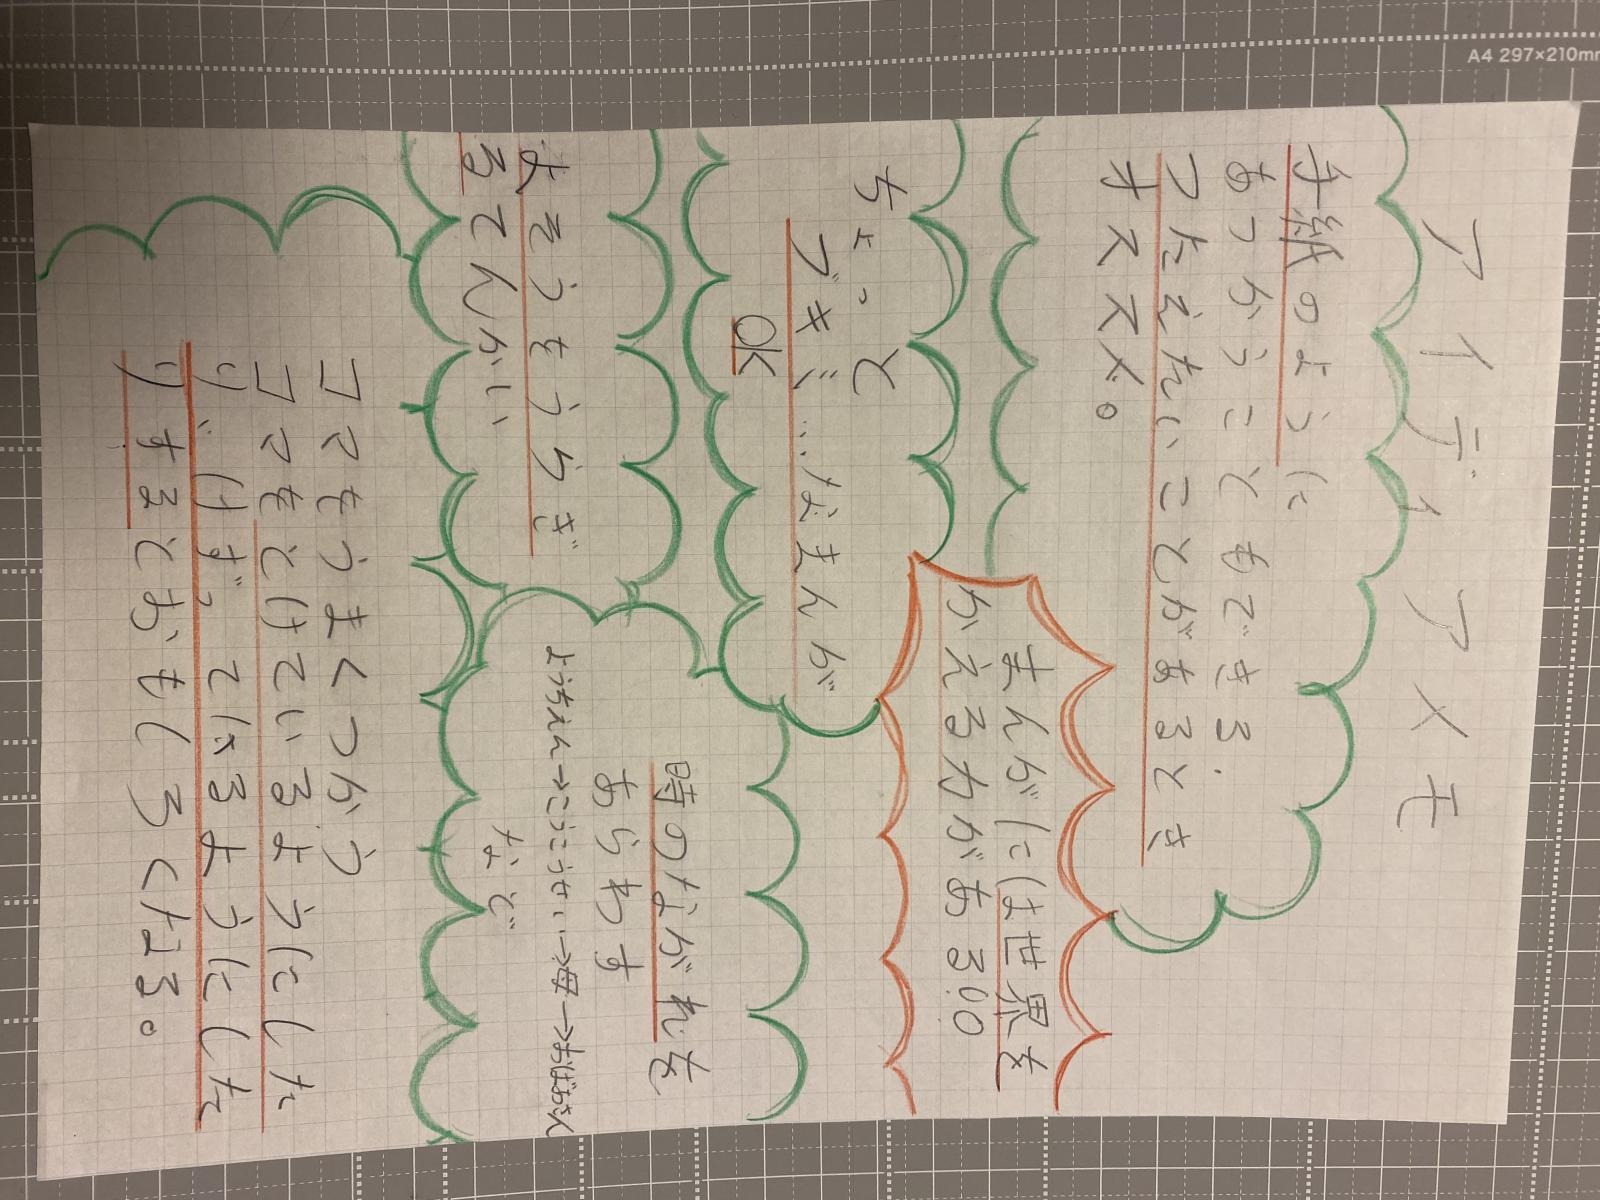 A4 297×210mm
アイディアメモ
手紙のように
あつかうこともできる.
つたえたいことがあるとき
オススメ。
まんがには世界を
かえる力がある。。。
ちょっと
ブキミ…なまんが
OK
時のながれを
あらわす
ようちえん→こうこうせい→母→おばあさん
など
よそうをうらぎ
るてんかい
コマをうまくつかう
コマをとけているようにした
り、けずっているようにした
りするとおもしろくなる。